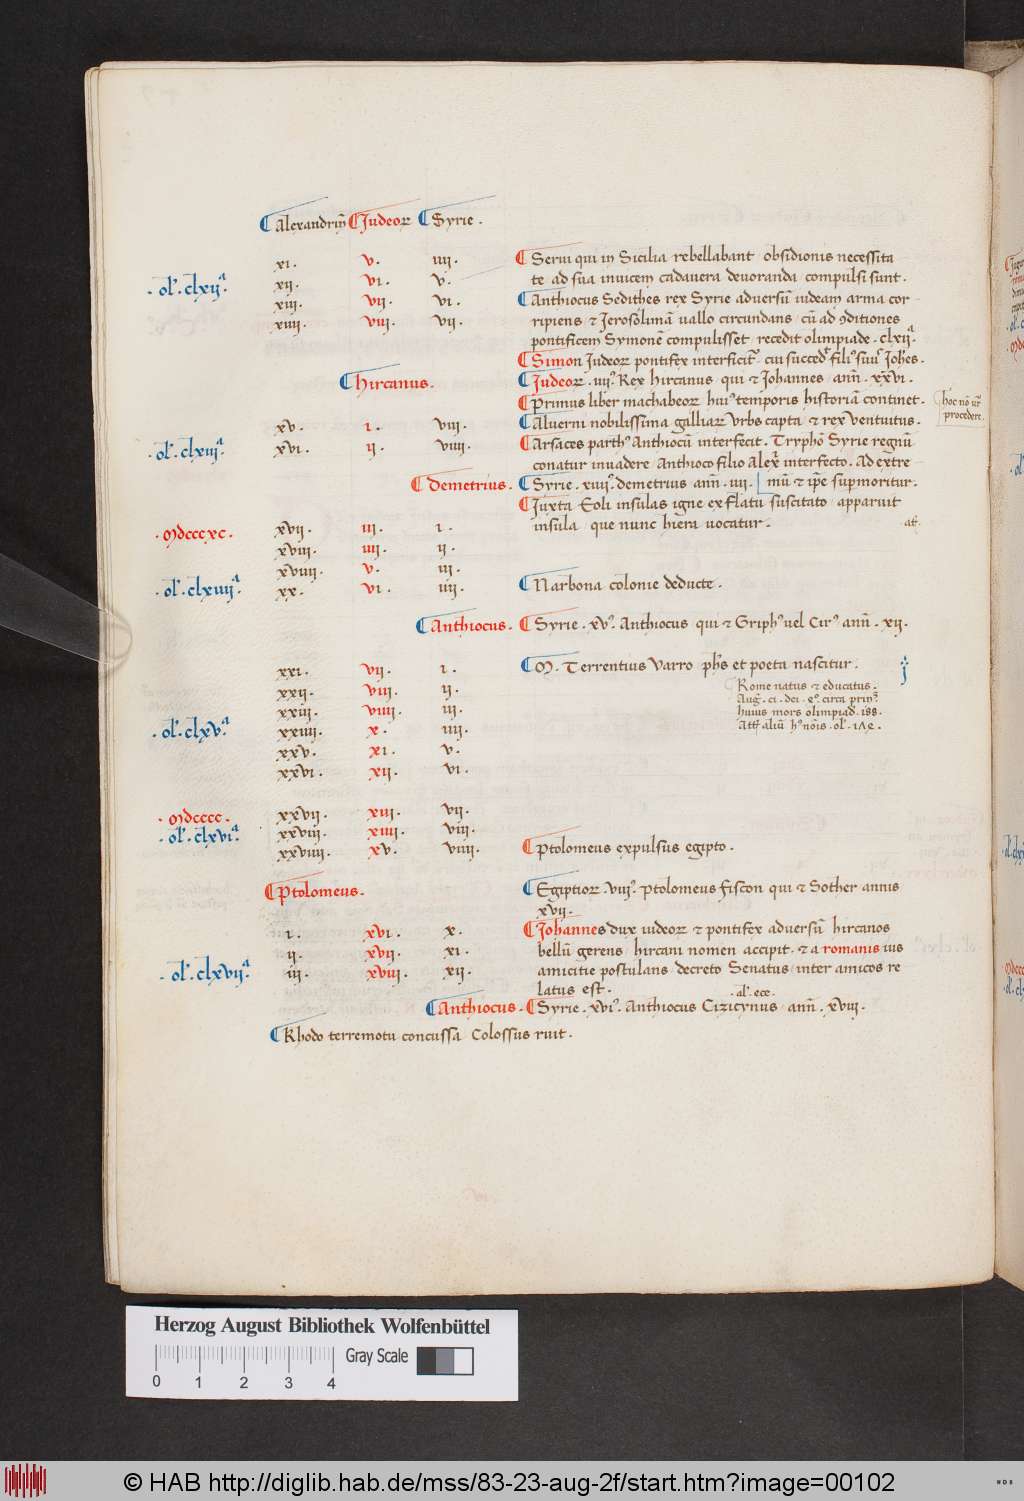 Alexandriñ Judeoꝝ Syrie.
xi. v. iiii. Serui qui in Sicilia rebellabant obsidionis necessita
· ol'. clxij.ª xij. vi. v. te ad sua inuicem cadauera deuoranda compulsi sunt.
xiii. vij. vi. Anthiocus Sedithes rex Syrie aduersũ iudeam arma cor-
xiiii. viii. vij. ripiens ⁊ Jerosolimã uallo circundans cũ ad ↄditiones
pontificem Symonẽ compulisset recedit olimpiade. clxij.ª
Simon Judeoꝝ pontifex interficit᷑. cui succed᷑ fili⁹ suu⁹ Joh̃es.
hircanus. Judeoꝝ. iiij.⁹ Rex hircanus qui ⁊ Johannes añn. xxvi.
Primus liber machabeoꝝ hui⁹ temporis historiã continet.
hoc nõ ur̃
procedere.
xv. i. viii. Aluerni nobilissima galliaꝝ vrbs capta ⁊ rex ventuitus.
· ol'. clxiij.ª xvi. ij. viiii. Arsaces parth⁹ Anthiocũ interfecit. Tryphõ Syrie regnũ
conatur inuadere Anthioco filio Alex̃ interfecto. Ad extre-
demetrius. Syrie. xiiij.⁹ demetrius añn. iiij. mũ ⁊ ip̃e sup̱moritur.
Juxta Eoli insulas igne ex flatu suscitato apparuit
· Mdcccxc. xvij. iij. i. insula que nunc hiera uocatur.
xviii. iiij. ij.
xviiii. v. iij.
· ol'. clxiiij.ª xx. vi. iiij. Narbona colonie deducte.
Anthiocus. Syrie. xv.⁹ Anthiocus qui ⁊ Griph⁹ uel Cir⁹ añn. xij.
xxi. vij. i. M. Terrentius Varro ph̃s et poeta nascitur.
xxij. viii. ij. Rome natus ⁊ educatus.
xxiii. viiii. iij.
huius mors olimpiad. 188.
· ol'. clxv.ª xxiiii. x. iiij.
xxv. xi. v.
xxvi. xij. vi.
· Mdcccc. xxvij. xiii. vij.
· ol'. clxvi.ª xxviii. xiiii. viii.
xxviiii. xv. viiii. Ptolomeus expulsus egipto.
Ptolomeus. Egiptioꝝ. viij.⁹ ptolomeus fiscon qui ⁊ Sother annis
xvij.
i. xvi. x. Johannes dux iudeoꝝ ⁊ pontifex aduersũ hircanos
ij. xvij. xi. bellũ gerens hircani nomen accipit. ⁊ a romanis ius
· ol'. clxvij.ª iij. xviii. xij. amicitie postulans decreto Senatus inter amicos re
latus est.
Anthiocus. Syrie. xvi.⁹ Anthiocus Cizicynus añn. xviij.
Rhodo terremotu concussa Colossus ruit.
Herzog August Bibliothek Wolfenbüttel
Gray Scale
0 1 2 3 4
© HAB http://diglib.hab.de/mss/83-23-aug-2f/start.htm?image=00102